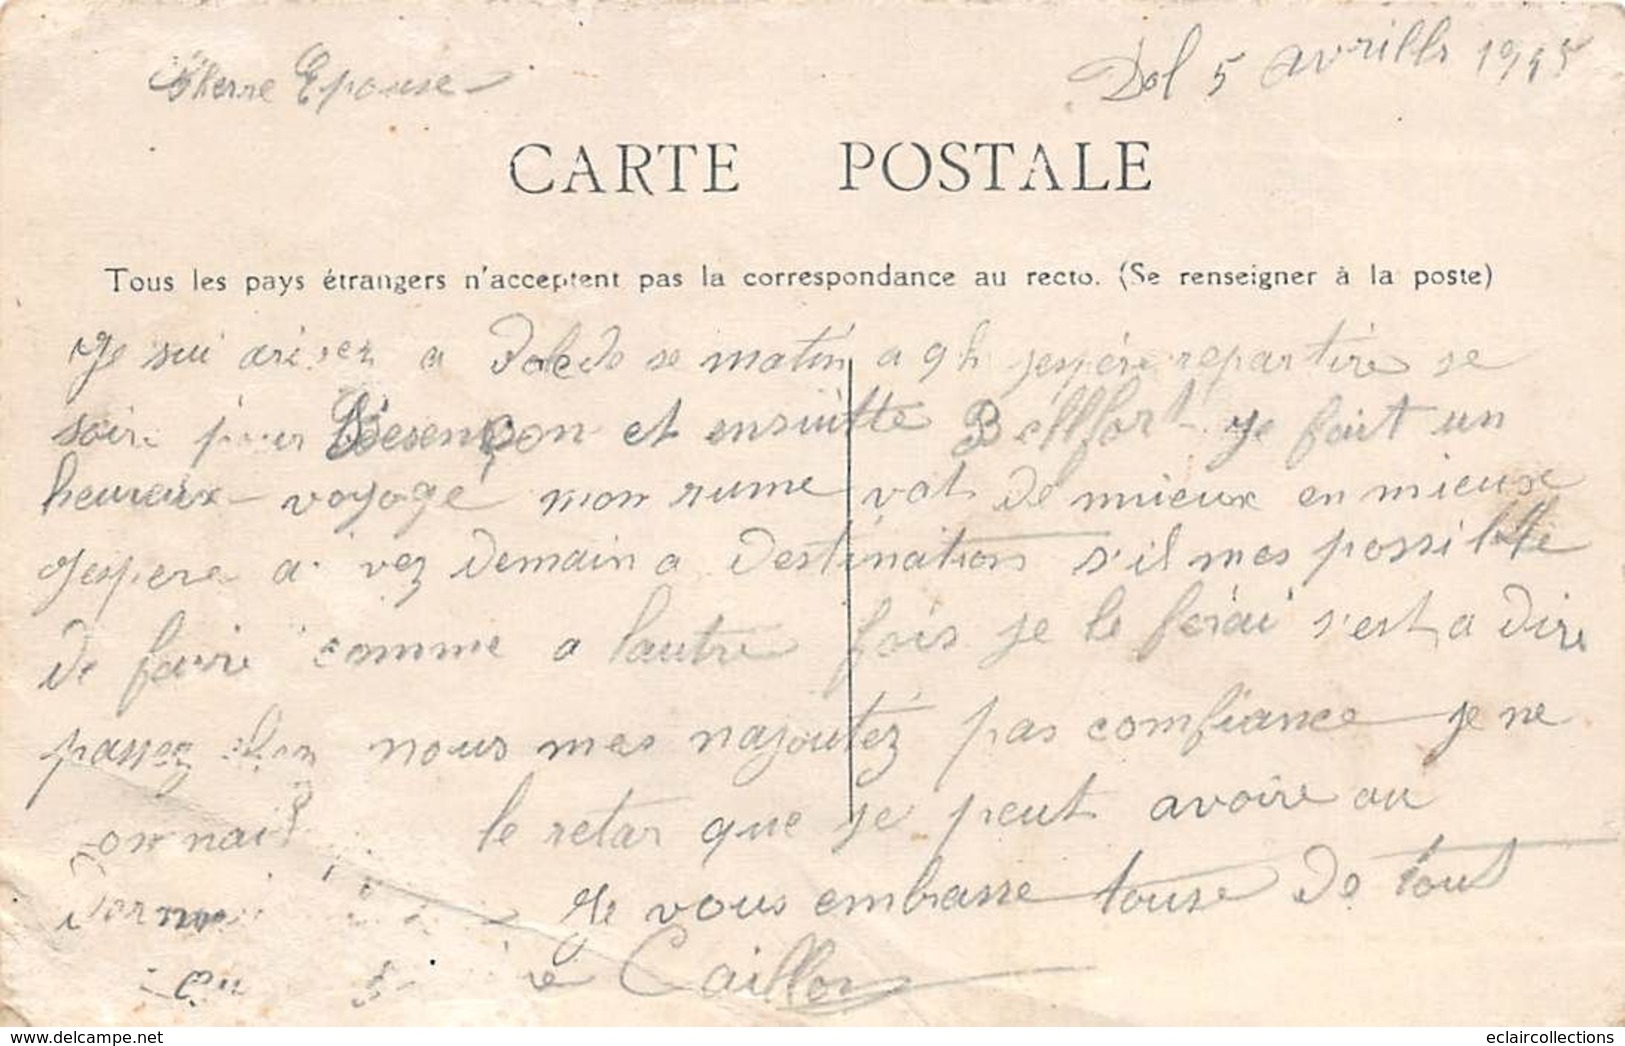 Cherre Epouse Dol 5 avrills 1915
CARTE POSTALE
Tous les pays étrangers n'acceptent pas la correspondance au recto. (Se renseigner à la poste)
Je sui arivez a se matin a 9h jespére repartire se
soire pour Besençon et ensuitte Bellfort je fait un
heureux voyage mon rume vat de mieux en mieux
jespere a vez demain a destination s'il mes possible
de faire comme a lautre fois je le ferai s'est a dire
passez chez nous mes najoutez pas comfiance je ne
connait le retar que je peut avoire au
Je vous embrasse touse de tout
Caillon
www.delcampe.net
eclaircollections